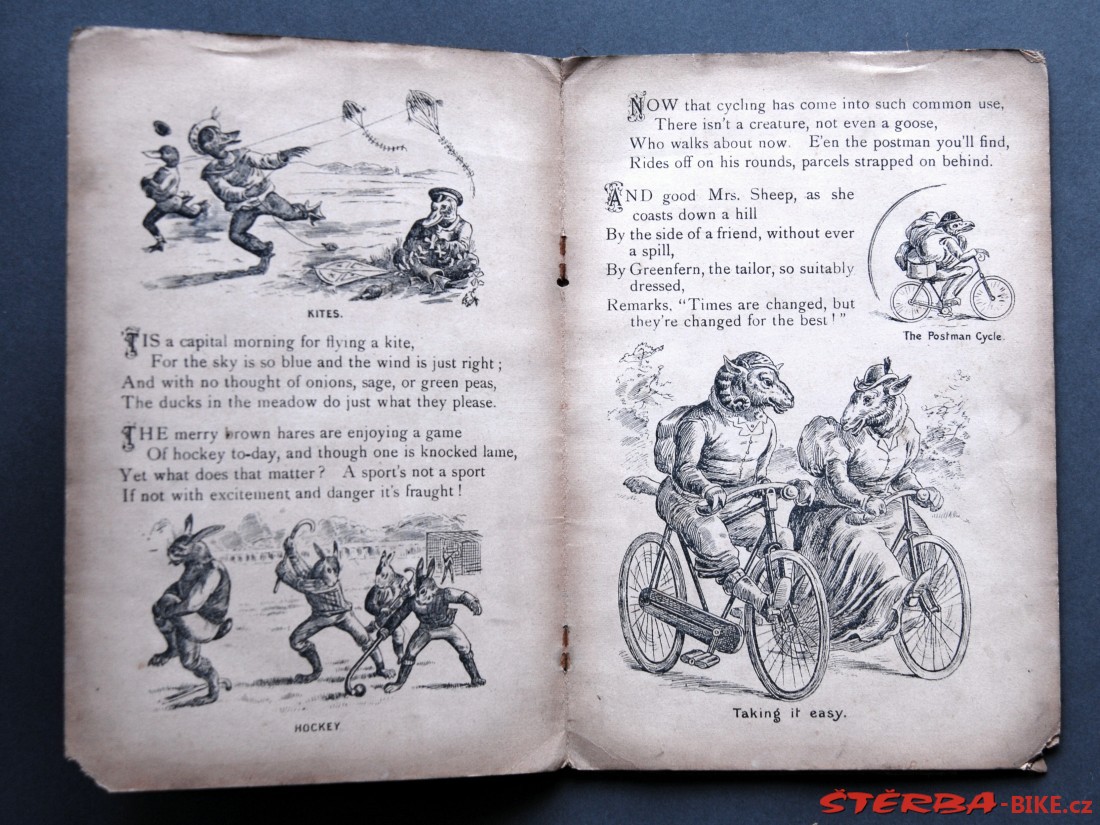 KITES.
'TIS a capital morning for flying a kite,
For the sky is so blue and the wind is just right;
And with no thought of onions, sage, or green peas,
The ducks in the meadow do just what they please.
THE merry brown hares are enjoying a game
Of hockey to-day, and though one is knocked lame,
Yet what does that matter? A sport's not a sport
If not with excitement and danger it's fraught!
HOCKEY.
NOW that cycling has come into such common use,
There isn't a creature, not even a goose,
Who walks about now. E'en the postman you'll find,
Rides off on his rounds, parcels strapped on behind.
AND good Mrs. Sheep, as she
coasts down a hill
By the side of a friend, without ever
a spill,
By Greenfern, the tailor, so suitably
dressed,
Remarks, "Times are changed, but
they're changed for the best!"
The Postman Cycle.
Taking it easy.
ŠTĚRBA-BIKE.cz